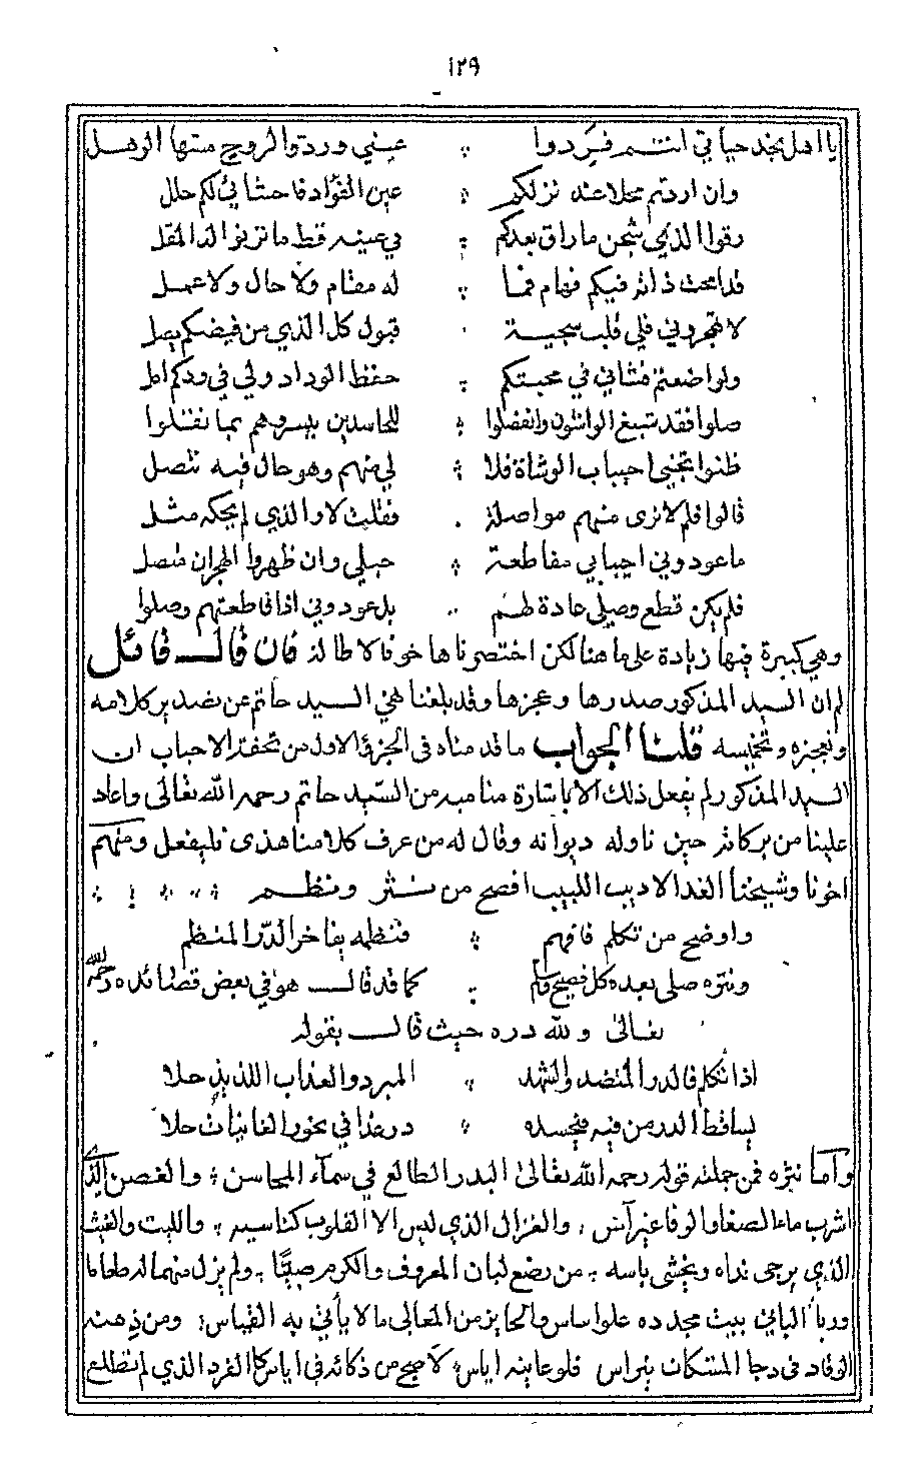 ١٢٩
يا اهل نجد حياتي انتم فردوا ؞ عيني وردوا الروح منها الوهل
وان اردتم محلا عنه نزلكم ؞ عين الفؤاد فاحشائي لكم حلل
رقوا الذي شجن ما راق بعدكم ؞ في عينه قط ما ترنو اله المقل
قد امحت ذاته فيكم فهام فما ؞ له مقام ولا حال ولا عمل
لا تهجروني فلي قلب سجيته قبول كل الذي من فيضكم يصل
ولو اضعتم مثاني في محبتكم ؞ حفظ الوداد ولي في ودكم امل
صلوا فقد شبغ الواشون وانفضلوا ؞ للحاسدين يسروهم بما نقلوا
ظنوا تجني احباب الوشاة فلا ؞ لي منهم وهو حال فيه تتصل
قالوا فلم لا نرى منهم مواصلة . فقلت لا والذي لم يحكه مثل
ما عودوني احبابي مقاطعة ؞ حبلي وان ظهروا الهجران متصل
فلم يكن قطع وصلي عادة لهم .. بل عودوني اذا قاطعتهم وصلوا
وهي كبيرة فيها زيادة على ما هنا لكن اختصرناها خوف الاطالة فان قال قائل
لم ان السيد المذكور صدرها وعجزها وقد بلغنا نهي السيد حاتم عن تصدير كلامه
وتعجيزه وتخميسه قلنا الجواب ما قدمناه في الجزؤ الاول من تحفة الاحباب ان
السيد المذكور لم يفعل ذلك الا باشارة منامية من السيد حاتم رحمه الله تعالى واعاد
علينا من بركاته حين ناوله ديوانه وقال له من عرف كلامنا هذى فليفعل ومنهم
اخونا وشيخنا الغد الاديب اللبيب افصح من نثر ونظم
واوضح من تكلم فافهم ؞ فنظمه يفاخر الدر المنظم
ونثره صلى بعده كل فصيح قلم ؞ كما قد قال هو في بعض قصائده رحمه الله
تعالى ولله دره حيث قال بقوله
اذا تكلم فالدر المنضد والشهد ؞ المبرد والعذاب اللذيذ حلا
يساقط الدر من فيه فتحسده ؞ در غذا في نحور الغانيات حلا
واما نثره فمن جملته قوله رحمه الله تعالى البدر الطالع في سمآء المحاسن ؛ والغصن الذي
اشرب ماء الصفا والوفا غير آسن ؛ والغزال الذي ليس الا القلوب كناسيه ؛ والليث والغيث
الذي يرجى نداه ويخشى باسه ؛ من رضع لبان المعروف والكرم صبيًا ؛ ولم يزل منهما له طعاما
وربا الباني بيت مجده على اساس والحايز من المعالي ما لا يأتي به القياس ؛ ومن ذهنه
الوقاد في دجا المشكلات نبراس فلو عاينه اياس ؛ لاصبح من ذكائه في اياس كا الفرد الذي لم تطلع